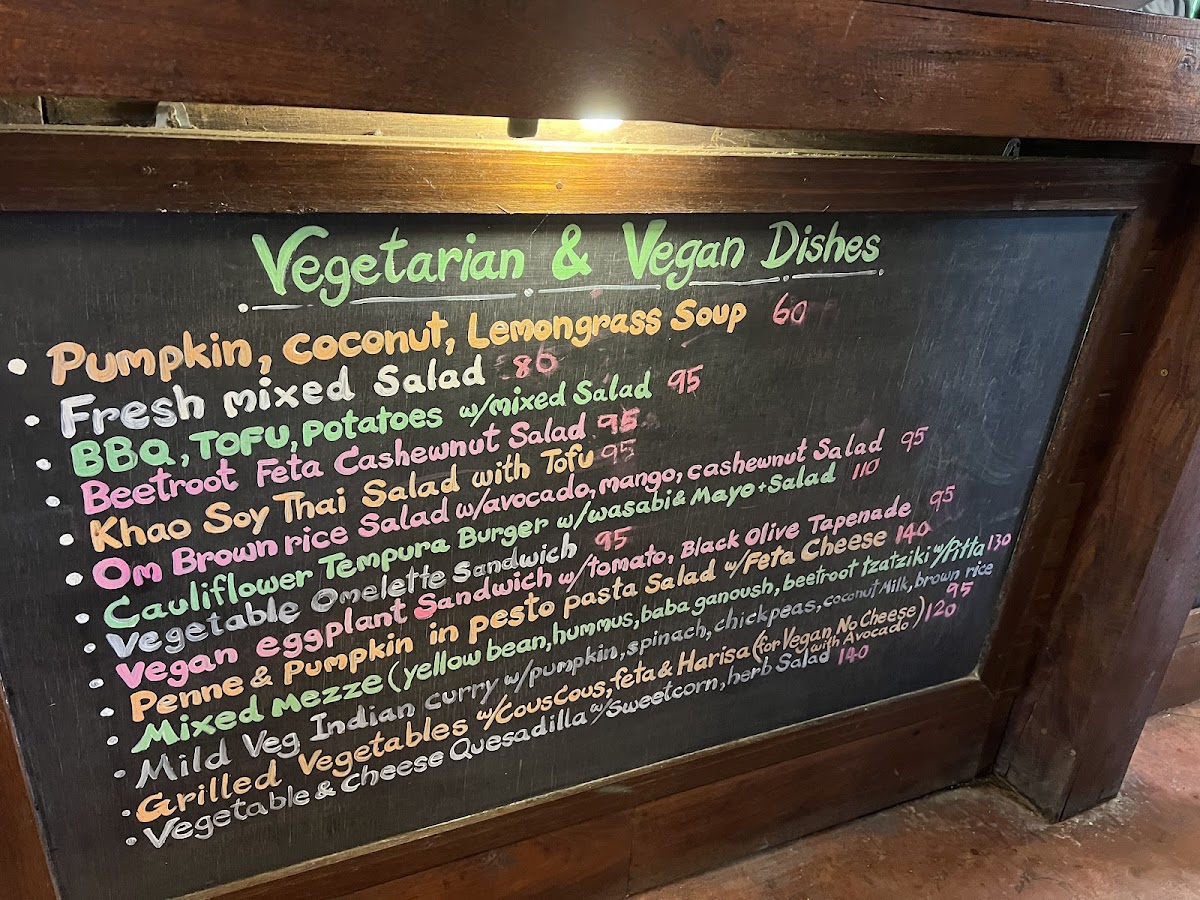 Vegetarian & Vegan Dishes
• Pumpkin, Coconut, Lemongrass Soup 60
• Fresh mixed Salad 86
• BBQ, TOFU, Potatoes w/mixed Salad 95
• Beetroot Feta Cashewnut Salad 95
• Khao Soy Thai Salad with Tofu 95
• Om Brown rice Salad w/avocado, mango, cashewnut Salad 95
• Cauliflower Tempura Burger w/wasabi & Mayo + Salad 110
• Vegetable Omelette Sandwich 95
• Vegan eggplant Sandwich w/tomato, Black Olive Tapenade 95
• Penne & Pumpkin in pesto pasta Salad w/Feta Cheese 140
• Mixed Mezze (yellow bean, hummus, baba ganoush, beetroot tzatziki w/Pitta 130
• Mild Veg Indian curry w/pumpkin, spinach, chickpeas, coconut Milk, brown rice 95
• Grilled Vegetables w/Couscous, feta & Harisa (for Vegan, No Cheese with Avocado) 120
• Vegetable & Cheese Quesadilla w/Sweetcorn, herb Salad 140